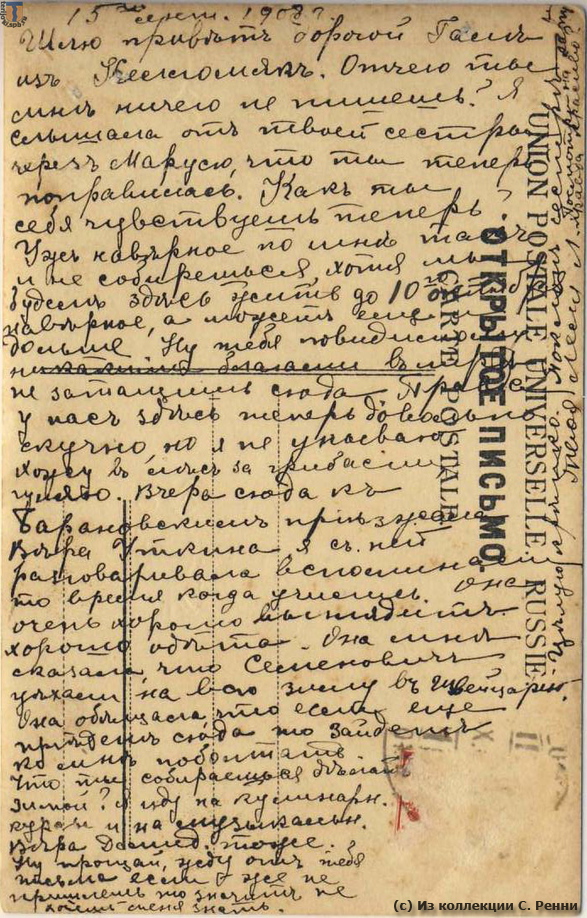 15го сент. 1908 г.
Шлю привѣтъ дорогой Галѣ
изъ Келломякъ. Отчего ты
мнѣ ничего не пишешь? Я
слышала отъ твоей сестры
черезъ Марусю, что ты теперь
поправилась. Какъ ты
себя чувствуешь теперь?
Ужъ навѣрное ко мнѣ такъ
и не соберешься, хотя мы
будемъ здѣсь жить до 10 окт.
навѣрное, а можетъ еще и
дольше. Ну тебя повидимому
никакими благами въ мірѣ
не затащишь сюда. Правда
у насъ здѣсь теперь довольно
скучно, но я не унываю
хожу въ лѣсъ за грибами
гуляю. Вчера сюда къ
Барановскимъ приѣзжала
Вѣра Уткина я съ ней
разговаривала вспоминали
то время когда учились. Она
очень хорошо выглядитъ
хорошо одѣта. Она мнѣ
сказала, что Семеновичъ
уѣхали на всю зиму въ Швейцарію.
Она обѣщала, что если еще
приѣдетъ сюда то зайдетъ
ко мнѣ поболтать.
Что ты собираешься дѣлать
зимой? Я иду на кулинарн.
курсы и на музыкальн.
Вѣра тоже.
Ну прощай, жду отъ тебя
письма если уже не
пришлешь то значитъ не
хочешь меня знать.
Цѣлую крѣпко. Поклонъ сестрѣ
Твоя
UNION POSTALE UNIVERSELLE. RUSSIE
ОТКРЫТОЕ ПИСЬМО.
CARTE POSTALE
(c) Из коллекции С. Ренни